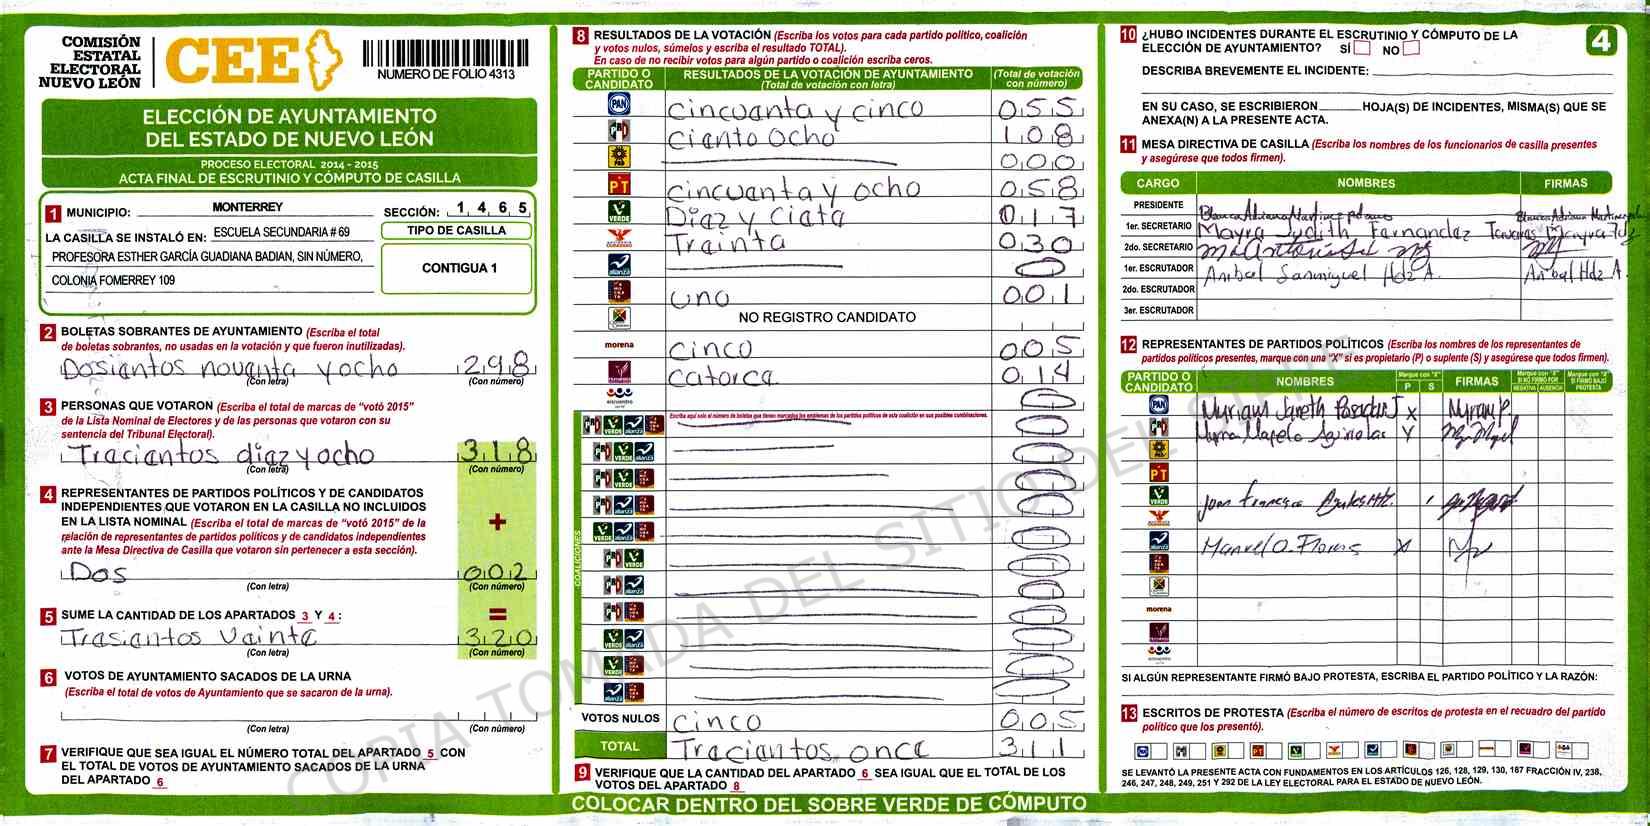 COMISIÓN
ESTATAL
ELECTORAL
NUEVO LEÓN
CEE
NUMERO DE FOLIO 4313
ELECCIÓN DE AYUNTAMIENTO
DEL ESTADO DE NUEVO LEÓN
PROCESO ELECTORAL 2014 - 2015
ACTA FINAL DE ESCRUTINIO Y CÓMPUTO DE CASILLA
1 MUNICIPIO: MONTERREY SECCIÓN: 1 4 6 5
LA CASILLA SE INSTALÓ EN: ESCUELA SECUNDARIA # 69
PROFESORA ESTHER GARCÍA GUADIANA BADIAN, SIN NÚMERO,
COLONIA FOMERREY 109
TIPO DE CASILLA
CONTIGUA 1
2 BOLETAS SOBRANTES DE AYUNTAMIENTO (Escriba el total
de boletas sobrantes, no usadas en la votación y que fueron inutilizadas).
Dosiantos novanta y ocho 298
(Con letra) (Con número)
3 PERSONAS QUE VOTARON (Escriba el total de marcas de "votó 2015"
de la Lista Nominal de Electores y de las personas que votaron con su
sentencia del Tribunal Electoral).
Traciantos diaz y ocho 318
(Con letra) (Con número)
4 REPRESENTANTES DE PARTIDOS POLÍTICOS Y DE CANDIDATOS
INDEPENDIENTES QUE VOTARON EN LA CASILLA NO INCLUIDOS
EN LA LISTA NOMINAL (Escriba el total de marcas de "votó 2015" de la
relación de representantes de partidos políticos y de candidatos independientes
ante la Mesa Directiva de Casilla que votaron sin pertenecer a esta sección).
+
Dos 002
(Con letra) (Con número)
5 SUME LA CANTIDAD DE LOS APARTADOS 3 Y 4 :
=
Trasiantos Vainta 320
(Con letra) (Con número)
6 VOTOS DE AYUNTAMIENTO SACADOS DE LA URNA
(Escriba el total de votos de Ayuntamiento que se sacaron de la urna).
(Con letra) (Con número)
7 VERIFIQUE QUE SEA IGUAL EL NÚMERO TOTAL DEL APARTADO 5 CON
EL TOTAL DE VOTOS DE AYUNTAMIENTO SACADOS DE LA URNA
DEL APARTADO 6
8 RESULTADOS DE LA VOTACIÓN (Escriba los votos para cada partido político, coalición
y votos nulos, súmelos y escriba el resultado TOTAL).
En caso de no recibir votos para algún partido o coalición escriba ceros.
PARTIDO O CANDIDATO
RESULTADOS DE LA VOTACIÓN DE AYUNTAMIENTO
(Total de votación con letra)
(Total de votación con número)
PAN cincuanta y cinco 055
PRI cianto ocho 108
PRD 000
PT cincuanta y ocho 058
VERDE Diaz y ciata 017
Trainta 030
alianza
uno 001
NO REGISTRO CANDIDATO
morena cinco 005
catorca 014
encuentro
Escriba aquí solo el número de boletas que tienen marcados los emblemas de los partidos políticos de esta coalición en sus posibles combinaciones.
COALICIONES
VOTOS NULOS cinco 005
TOTAL Traciantos once 311
9 VERIFIQUE QUE LA CANTIDAD DEL APARTADO 6 SEA IGUAL QUE EL TOTAL DE LOS
VOTOS DEL APARTADO 8
COLOCAR DENTRO DEL SOBRE VERDE DE CÓMPUTO
10 ¿HUBO INCIDENTES DURANTE EL ESCRUTINIO Y CÓMPUTO DE LA
ELECCIÓN DE AYUNTAMIENTO? SÍ NO
4
DESCRIBA BREVEMENTE EL INCIDENTE:
EN SU CASO, SE ESCRIBIERON HOJA(S) DE INCIDENTES, MISMA(S) QUE SE
ANEXA(N) A LA PRESENTE ACTA.
11 MESA DIRECTIVA DE CASILLA (Escriba los nombres de los funcionarios de casilla presentes
y asegúrese que todos firmen).
CARGO NOMBRES FIRMAS
PRESIDENTE Blanca Adriana Martinez
1er. SECRETARIO Mayra Judith Farnandaz Mayra
2do. SECRETARIO
1er. ESCRUTADOR Anibal Sanmiguel Hdz A. Anibal Hdz A.
2do. ESCRUTADOR
3er. ESCRUTADOR
12 REPRESENTANTES DE PARTIDOS POLÍTICOS (Escriba los nombres de los representantes de
partidos políticos presentes, marque con una "X" si es propietario (P) o suplente (S) y asegúrese que todos firmen).
PARTIDO O CANDIDATO NOMBRES Marque con "X" P S FIRMAS Marque con "X" SI NO FIRMÓ POR NEGATIVA AUSENCIA Marque con "X" SI FIRMÓ BAJO PROTESTA
PAN Myriam Janeth X Myriam P.
PRD
PT
VERDE Juan Francisco
alianza Manuel O. Flores X
morena
encuentro
SI ALGÚN REPRESENTANTE FIRMÓ BAJO PROTESTA, ESCRIBA EL PARTIDO POLÍTICO Y LA RAZÓN:
13 ESCRITOS DE PROTESTA (Escriba el número de escritos de protesta en el recuadro del partido
político que los presentó).
SE LEVANTÓ LA PRESENTE ACTA CON FUNDAMENTOS EN LOS ARTÍCULOS 126, 128, 129, 130, 187 FRACCIÓN IV, 238,
246, 247, 248, 249, 251 Y 292 DE LA LEY ELECTORAL PARA EL ESTADO DE NUEVO LEÓN.
COPIA TOMADA DEL SITIO DEL